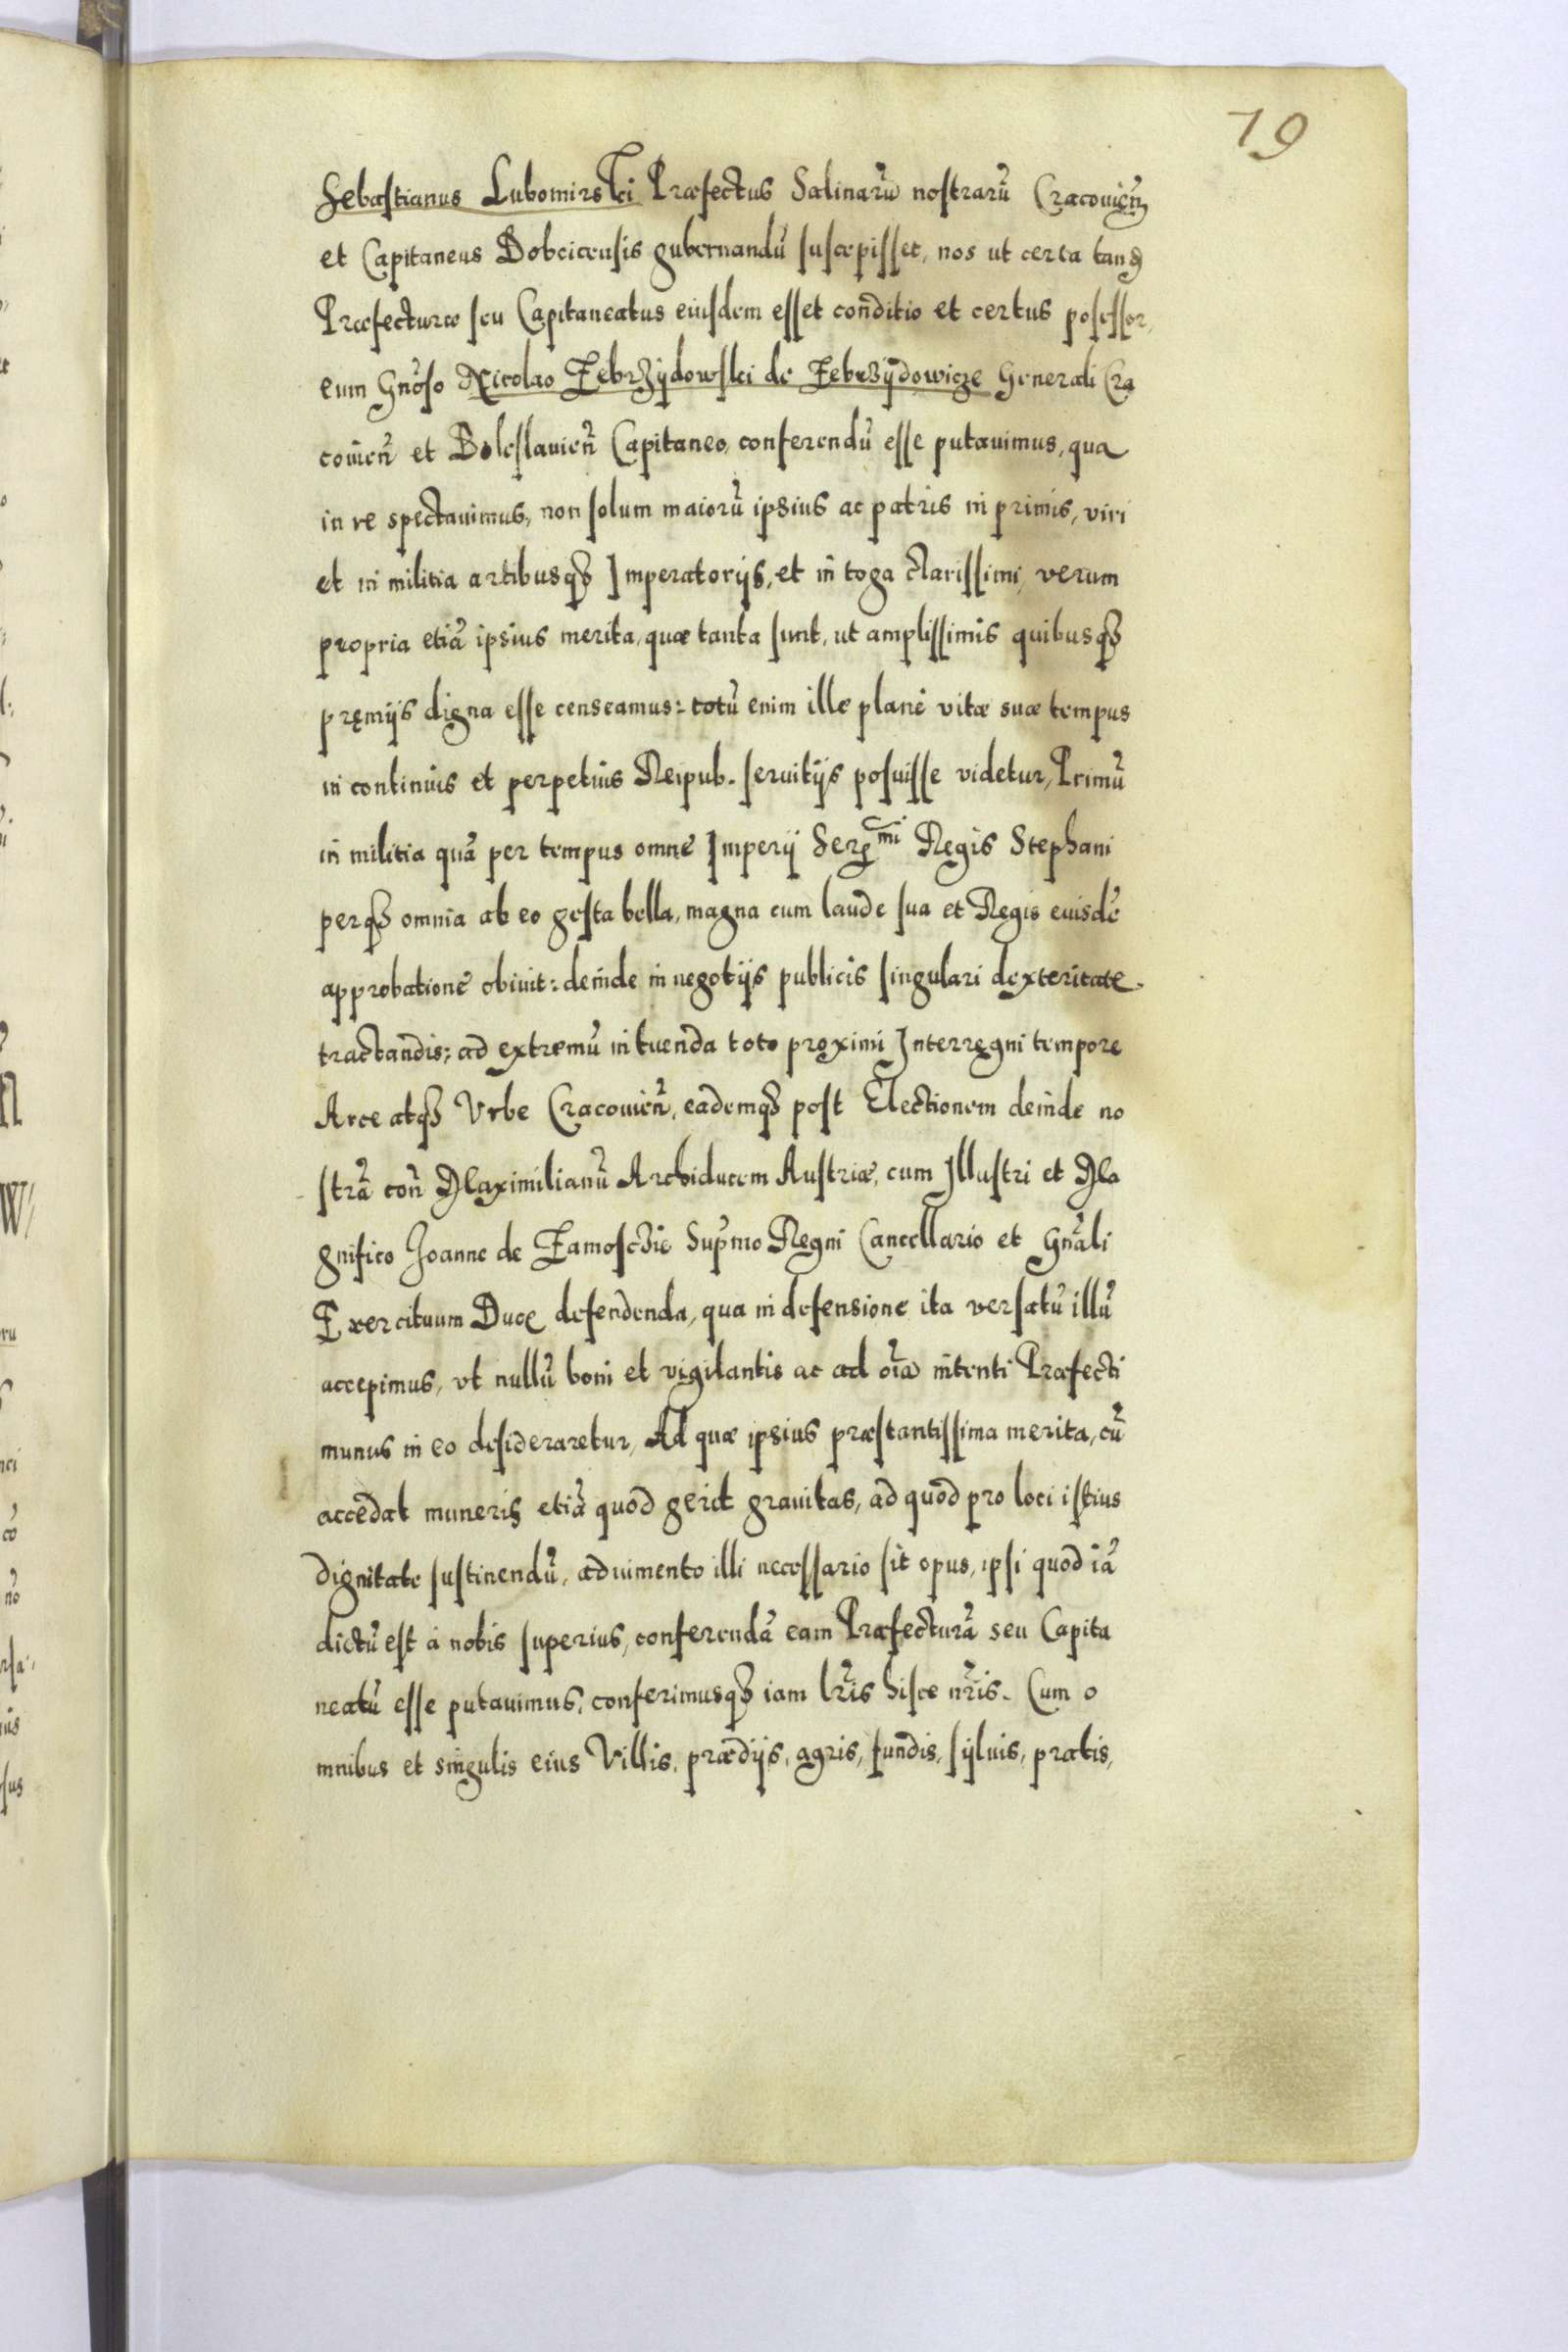 19
Sebastianus Lubomirski Præfectus Salinarũ nostrarũ Cracovieñ
et Capitaneus Dobcicensis gubernandũ suscepisset, nos ut certa tandẽ
Præfecturæ seu Capitaneatus eiusdem esset conditio et certus posessor,
eum Gnõso Nicolao Zebrzÿdowski de Zebrzÿdowicze Generali Cra
covieñ et Boleslavieñ Capitaneo, conferendũ esse putavimus, qua
in re spectavimus, non solum maiorũ ipsius ac patris in primis, viri
et in militia artibusq3 Imperatorijs, et in toga clarissimi, verum
propria etiã ipsius merita, quæ tanta sunt, ut amplissimis quibusq3
pręmijs digna esse censeamus: totũ enim ille planè vitæ suæ tempus
in continuis et perpetuis Reipub. servitijs posuisse videtur, Primũ
in militia quã per tempus omne Imperij Serᵐⁱ Regis Stephani
perq3 omnia ab eo gesta bella, magna cum laude sua et Regis eiusdẽ
approbatione obivit: deinde in negotijs publicis singulari dexteritate
tractandis; ad extremũ in tuenda toto proximi Interregni tempore
Arce atq3 Urbe Cracovieñ, eademq3 post Electionem deinde no
strã coñ Maximilianũ Archiducem Austriæ, cum Illustri et Ma
gnifico Joanne de Zamoscie Supmo Regni Cancellario et Gnãli
Exercituum Duce defendenda, qua in defensione ita versatũ illũ
accepimus, ut nullũ boni et vigilantis ac ad oĩa intenti Præfecti
munus in eo desideraretur, Ad quæ ipsius præstantissima merita, cũ
accedat muneris etiã quod gerit gravitas, ad quod pro loci istius
dignitate sustinendũ, adiumento illi necessario sit opus, ipsi quod iã
dictũ est à nobis superius, conferendã eam Præfecturã seu Capita
neatũ esse putavimus, conferimusq3 iam lr̃is hisce nr̃is. Cum o
mnibus et singulis eius Villis, prædijs, agris, fundis, sÿlvis, pratis,